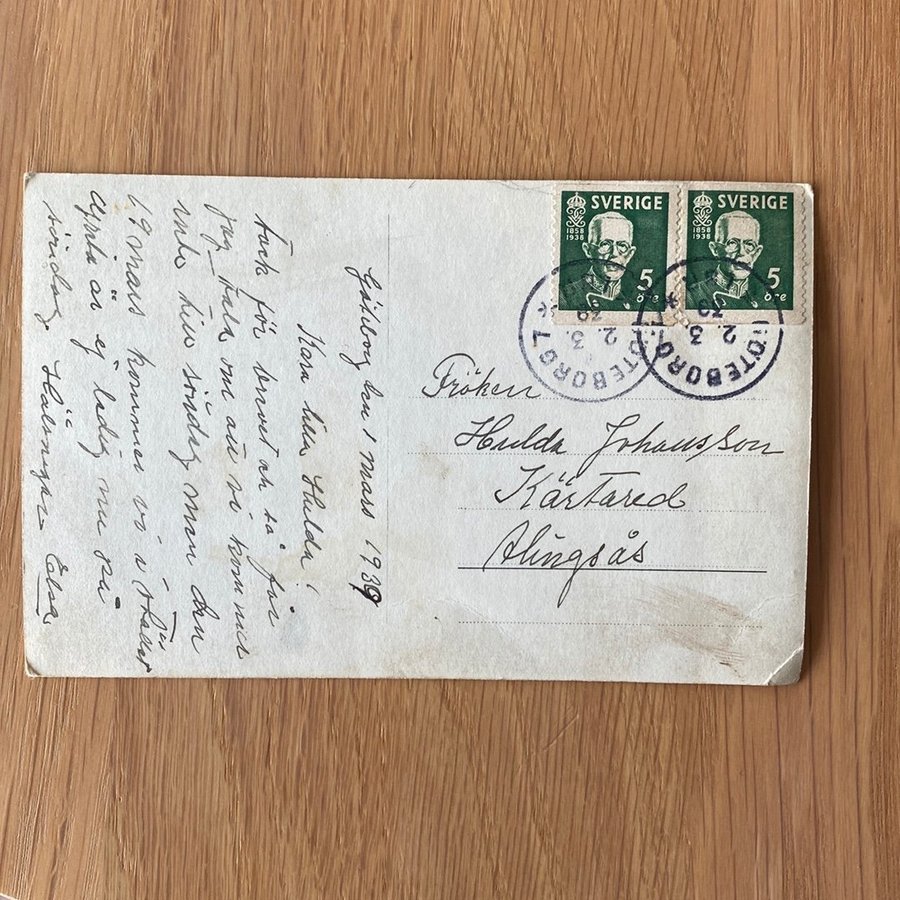 Göteborg den 1 mars 1939
Kära lilla Hulda!
tack för brevet och så får
jag tala om att vi kommer
inte till söndag men den
19 mars kommer vi
är ej ledig nu på
söndag Hälsningar Elsa
SVERIGE
1858
1938
5
öre
SVERIGE
1858
1938
5
öre
GÖTEBORG 7
2. 3.
39
GÖTEBORG
2. 3.
39
Fröken
Hulda Johansson
Kärtared
Alingsås